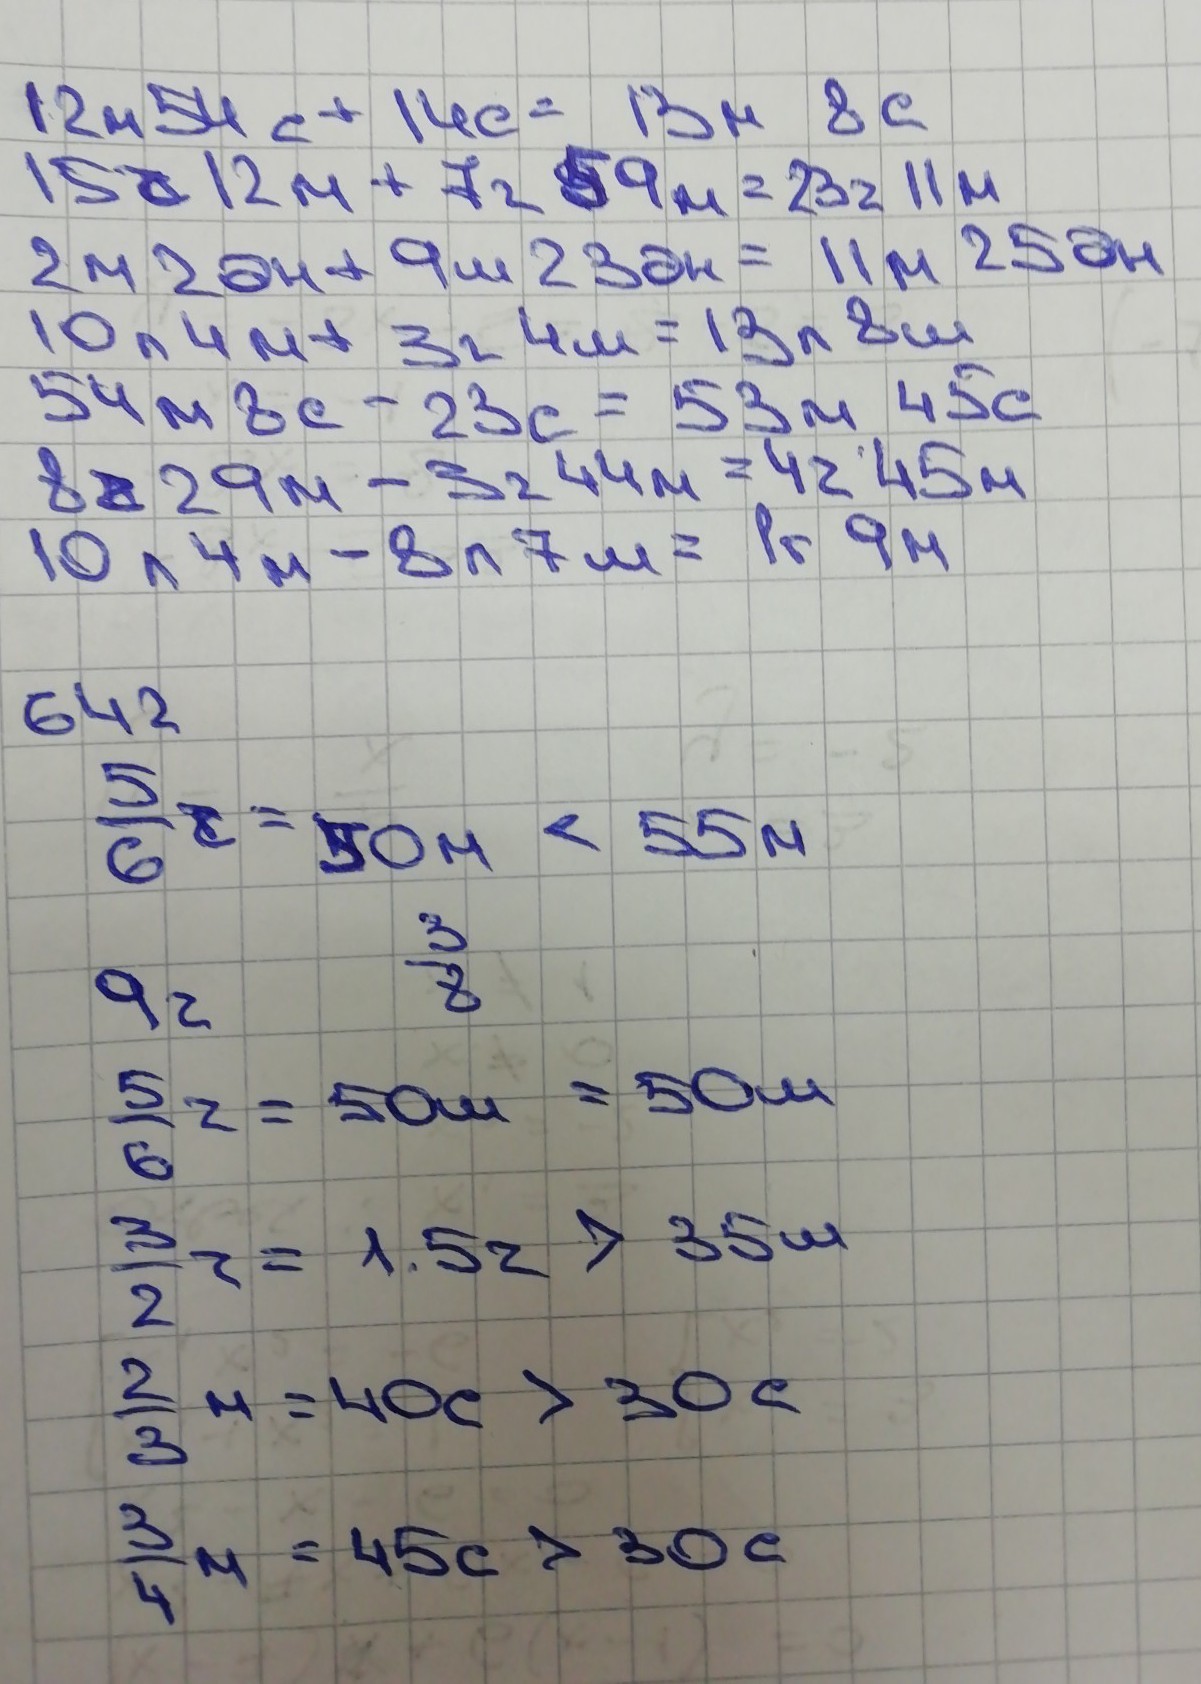 12м 54 с + 14с = 13м 8с
15г 12м + 7г 59м = 23г 11м
2м 2дн + 9м 23дн = 11м 25дн
10л 4м + 3г 4м = 13л 8м
54м 8с - 23с = 53м 45с
8г 29м - 3г 44м = 4г 45м
10 л 4м - 8л 7м = 1г 9м
642
5/6 г = 50м < 55м
9г 3/8
5/6 г = 50м = 50м
3/2 г = 1.5г > 35м
2/3 м = 40с > 30с
3/4 м = 45с > 30с